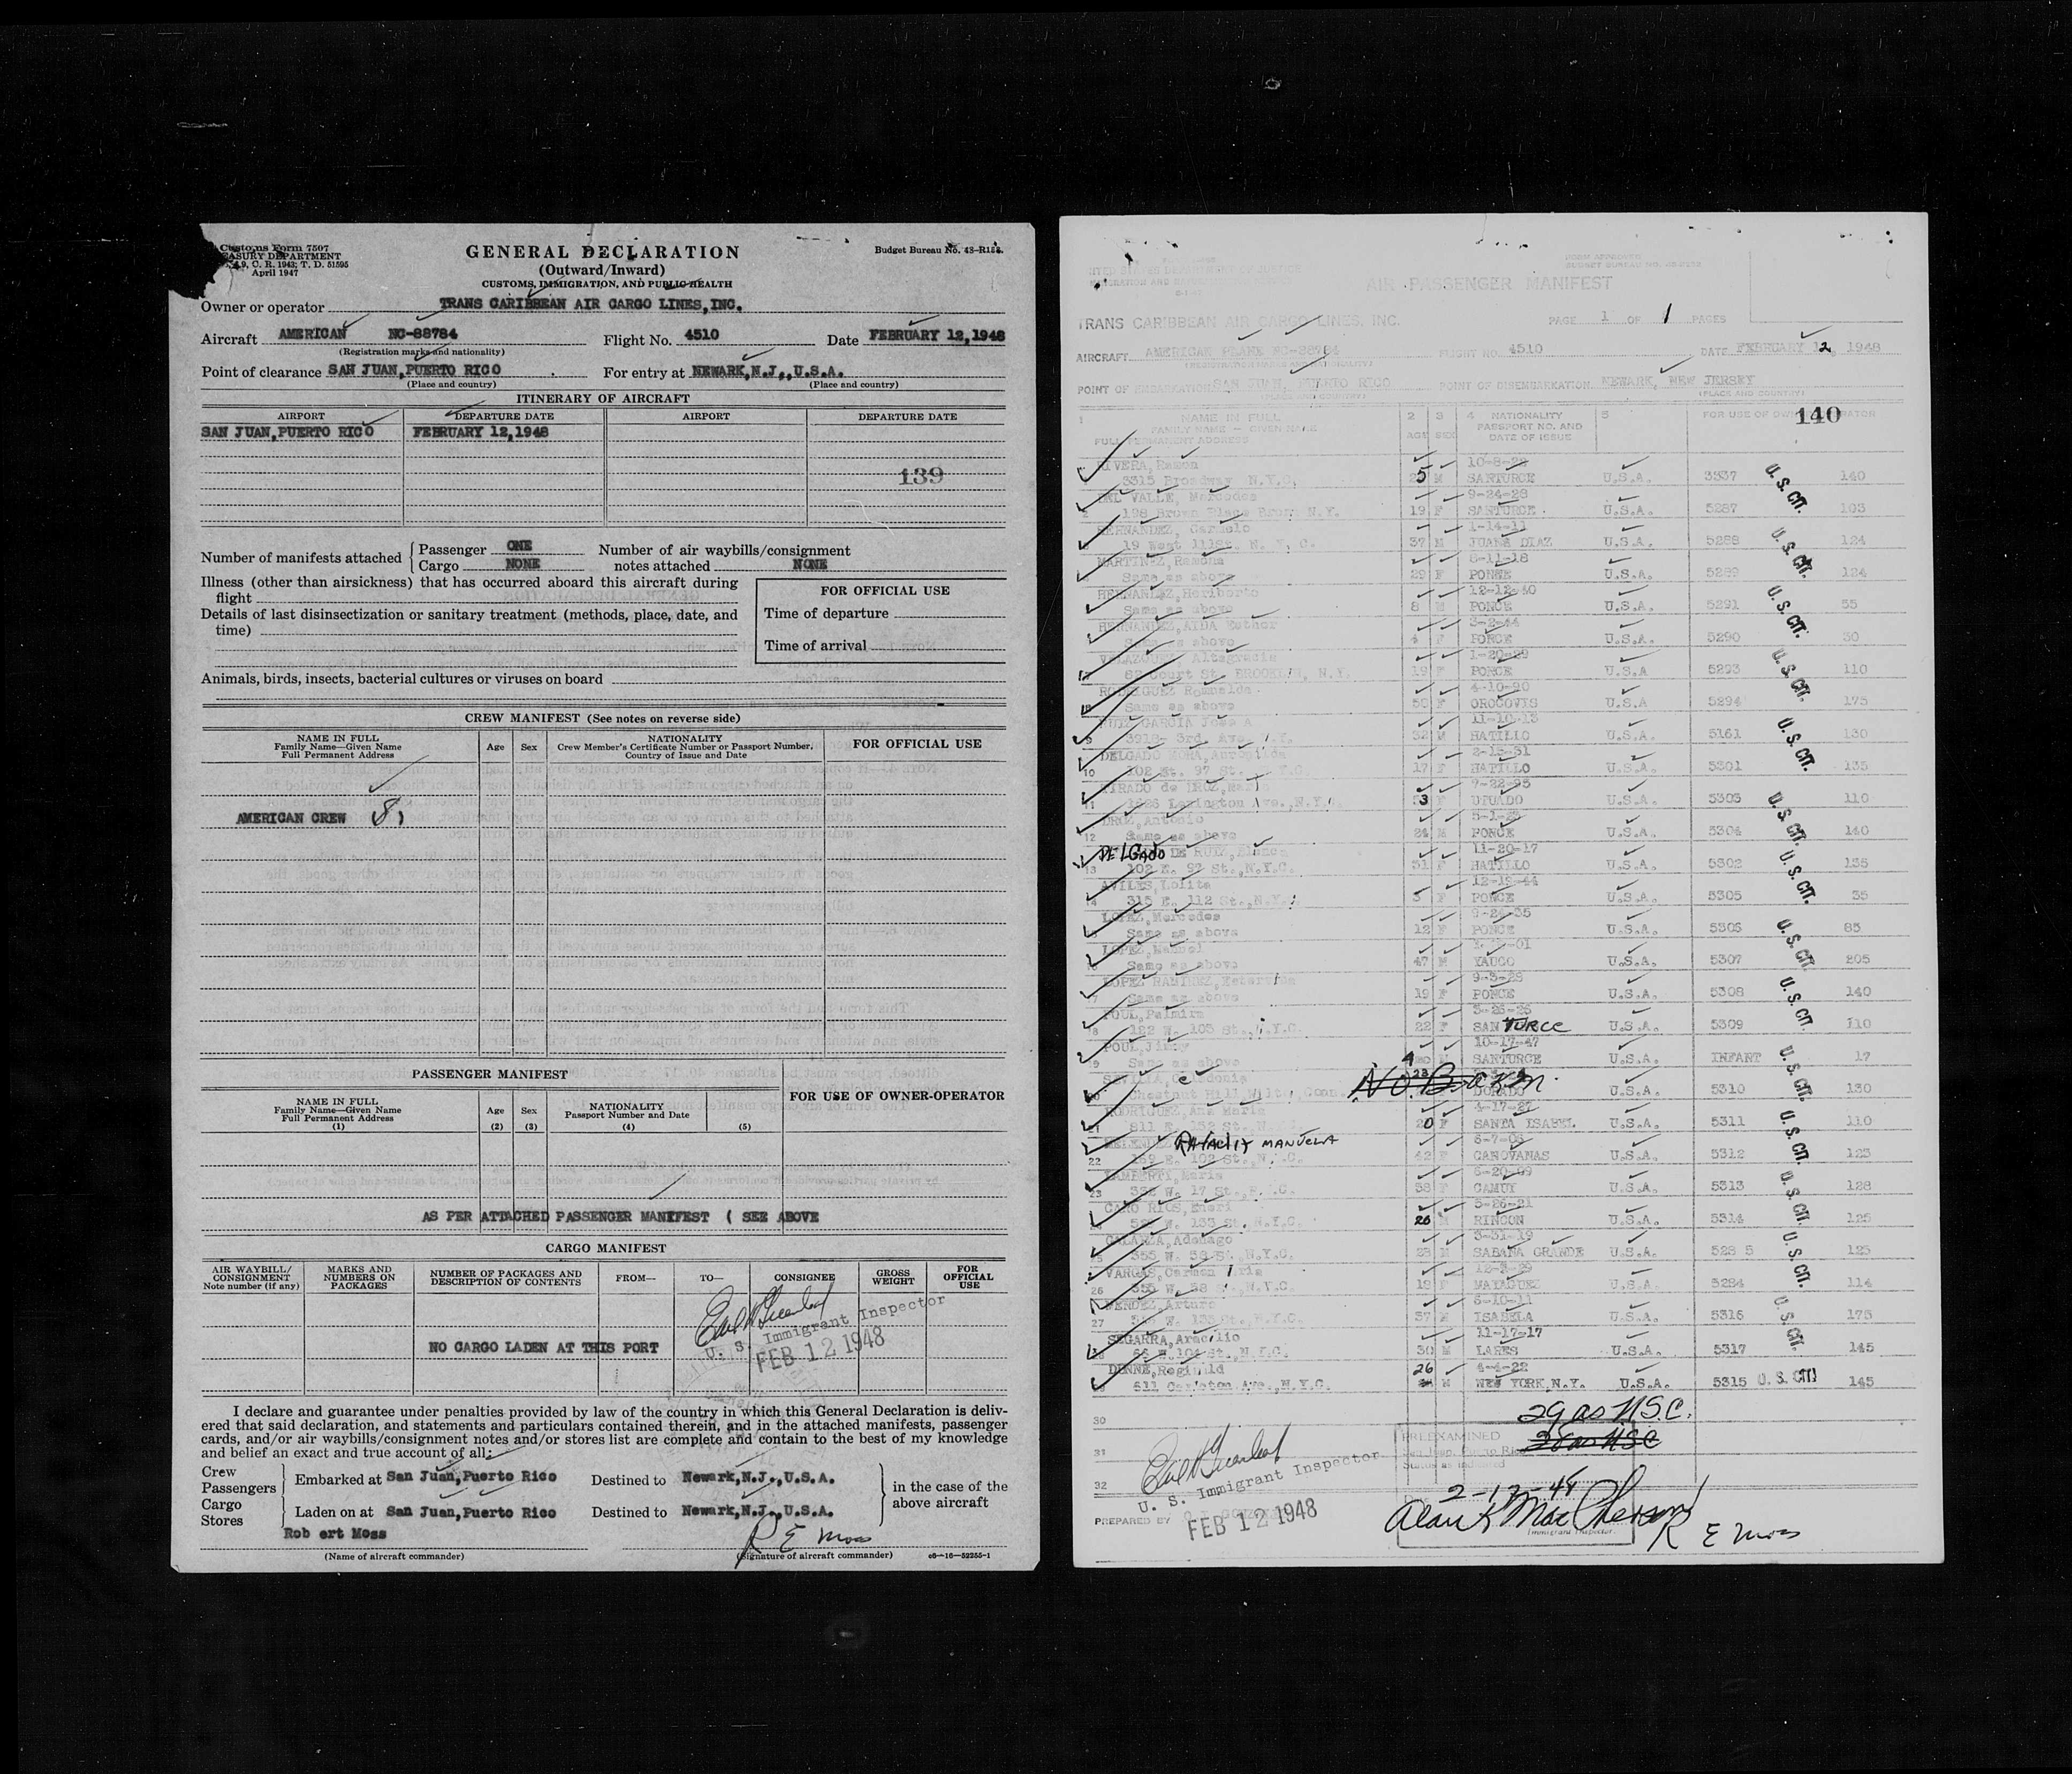 Customs Form 7507
TREASURY DEPARTMENT
4.9, C. R. 1943; T. D. 51595
April 1947
GENERAL DECLARATION
(Outward/Inward)
CUSTOMS, IMMIGRATION, AND PUBLIC HEALTH
Budget Bureau No. 48-R188.
Owner or operator TRANS CARIBBEAN AIR CARGO LINES,INC.
Aircraft AMERICAN NC-88784 Flight No. 4510 Date FEBRUARY 12,1948
(Registration marks and nationality)
Point of clearance SAN JUAN,PUERTO RICO For entry at NEWARK,N.J.,U.S.A.
(Place and country) (Place and country)
ITINERARY OF AIRCRAFT
AIRPORT DEPARTURE DATE AIRPORT DEPARTURE DATE
SAN JUAN,PUERTO RICO FEBRUARY 12,1948
139
Number of manifests attached { Passenger ONE Number of air waybills/consignment
Cargo NONE notes attached NONE
Illness (other than airsickness) that has occurred aboard this aircraft during
flight
Details of last disinsectization or sanitary treatment (methods, place, date, and
time)
FOR OFFICIAL USE
Time of departure
Time of arrival
Animals, birds, insects, bacterial cultures or viruses on board
CREW MANIFEST (See notes on reverse side)
NAME IN FULL
Family Name—Given Name
Full Permanent Address
Age Sex
NATIONALITY
Crew Member's Certificate Number or Passport Number,
Country of Issue and Date
FOR OFFICIAL USE
AMERICAN CREW 8)
PASSENGER MANIFEST
FOR USE OF OWNER-OPERATOR
NAME IN FULL
Family Name—Given Name
Full Permanent Address
(1)
Age
(2)
Sex
(3)
NATIONALITY
Passport Number and Date
(4) (5)
AS PER ATTACHED PASSENGER MANIFEST ( SEE ABOVE
CARGO MANIFEST
AIR WAYBILL/
CONSIGNMENT
Note number (if any)
MARKS AND
NUMBERS ON
PACKAGES
NUMBER OF PACKAGES AND
DESCRIPTION OF CONTENTS
FROM—
TO—
CONSIGNEE
GROSS
WEIGHT
FOR
OFFICIAL
USE
NO CARGO LADEN AT THIS PORT
U. S. Immigrant Inspector
FEB 12 1948
I declare and guarantee under penalties provided by law of the country in which this General Declaration is deliv-
ered that said declaration, and statements and particulars contained therein, and in the attached manifests, passenger
cards, and/or air waybills/consignment notes and/or stores list are complete and contain to the best of my knowledge
and belief an exact and true account of all:
Crew
Passengers
Embarked at San Juan,Puerto Rico Destined to Newark,N.J.,U.S.A.
in the case of the
above aircraft
Cargo
Stores
Laden on at San Juan,Puerto Rico Destined to Newark,N.J.,U.S.A.
Rob ert Moss R E Moss
(Name of aircraft commander) (Signature of aircraft commander) c6—16—52255-1
AIR PASSENGER MANIFEST
TRANS CARIBBEAN AIR CARGO LINES, INC. PAGE 1 OF 1 PAGES
AIRCRAFT AMERICAN PLANE NC-88784 FLIGHT NO. 4510 DATE FEBRUARY 12, 1948
POINT OF EMBARKATION SAN JUAN, PUERTO RICO POINT OF DISEMBARKATION NEWARK, NEW JERSEY
(PLACE AND COUNTRY)
1 NAME IN FULL 2 3 4 NATIONALITY 5 FOR USE OF OWNER OPERATOR
140
FAMILY NAME — GIVEN NAME PASSPORT NO. AND
FULL PERMANENT ADDRESS AGE SEX DATE OF ISSUE
RIVERA, Ramon
3315 Broadway N.Y.C. 25 M SANTURCE U.S.A. 3337 U.S. CIT. 140
DEL VALLE, Mercedes 9-24-28
198 Brown Place Bronx N.Y. 19 F SANTURCE U.S.A. 5287 103
HERNANDEZ, Carmelo 1-14-11
19 West 111St. N. Y. C. 37 M JUANA DIAZ U.S.A. 5288 U.S. CIT. 124
MARTINEZ, Ramona 8-11-18
Same as above 29 F PONCE U.S.A. 5289 124
HERNANDEZ, Heriberto 12-12-40
Same as above 8 M PONCE U.S.A. 5291 U.S. CIT. 55
HERNANDEZ, AIDA Esther 3-2-44
Same as above 4 F PONCE U.S.A. 5290 30
VELAZQUEZ, Altagracia 1-20-29
Court St. BROOKLIN, N.Y. 19 F PONCE U.S.A 5293 U.S. CIT. 110
RODRIGUEZ Romualda 4-10-90
Same as above F OROCOVIS U.S.A 5294 175
RUIZ GARCIA Jose A
3918- 3rd. Ave. N.Y. 32 M HATILLO U.S.A. 5161 U.S. CIT. 130
DELGADO MORA, 2-15-31
10 102 E. 97 St. N.Y.C. 17 F HATILLO U.S.A. 5301 135
TIRADO de CRUZ, 7-22-95
11 Lexington Ave.,N.Y.C. 53 F UTUADO U.S.A. 5303 U.S. CIT. 110
CRUZ, Antonio
12 Same as above 24 M PONCE U.S.A. 5304 140
DELGADO DE RUIZ, Blanca 11-20-17
13 102 E. 97 St.,N.Y.C. 31 F HATILLO U.S.A. 5302 U.S. CIT. 135
AVILES, Lolita 12-19-44
14 315 E. 112 St.,N.Y. 3 F PONCE U.S.A. 5305 35
LOPEZ, Mercedes 9-24-35
Same as above 12 F PONCE U.S.A. 5306 U.S. CIT. 85
LOPEZ, Manuel
Same as above 47 M YAUCO U.S.A. 5307 205
LOPEZ RAMIREZ, 9-3-29
17 Same as above 19 F PONCE U.S.A. 5308 U.S. CIT. 140
POUL, Palmira 3-26-25
18 122 W. 103 St. N.Y.C. 22 F SANTURCE U.S.A. 5309 110
POUL, Jimmy 10-17-47
Same as above M SANTURCE U.S.A. INFANT U.S. CIT. 17
SEVILLA,
Chestnut Hill, Wilton, Conn. DORADO U.S.A. 5310 130
RODRIGUEZ, Ana Maria 4-17-27
21 811 E. St. N.Y.C. 20 F SANTA ISABEL U.S.A. 5311 U.S. CIT. 110
MANUELA
22 169 E. 102 St.,N.Y.C. 42 F CANOVANAS U.S.A. 5312 125
LAMBERTY, Maria 6-20-09
23 332 W. 17 St., N.Y.C. 38 F CAMUY U.S.A. 5313 U.S. CIT. 128
CARO RIOS, 5-26-21
W. 133 St. N.Y.C. 26 M RINCON U.S.A. 5314 125
CALARZA, 3-31-19
355 W. 58 St.,N.Y.C. 28 M SABANA GRANDE U.S.A. 528 5 U.S. CIT. 125
VARGAS, Carmen
26 355 W. 58 St. N.Y.C. 18 F MAYAGUEZ U.S.A. 5284 114
MENDEZ, Arturo
27 W. 133 St., N.Y.C. 37 M ISABELA U.S.A. 5316 U.S. CIT. 175
SEGARRA, Aracilio 11-17-17
W. 104 St.,N.Y.C. 30 M LARES U.S.A. 5317 145
DUNNE, Reginald 26 4-4-22
611 Carleton Ave.,N.Y.C. M NEW YORK,N.Y. U.S.A. 5315 U.S. CIT. 145
29 as USC.
30
31
32
PREEXAMINED
San Juan, Puerto Rico
Status as indicated
U. S. Immigrant Inspector
2-12-48
Alan K MacPherson
Immigrant Inspector.
R E Moss
PREPARED BY
FEB 12 1948